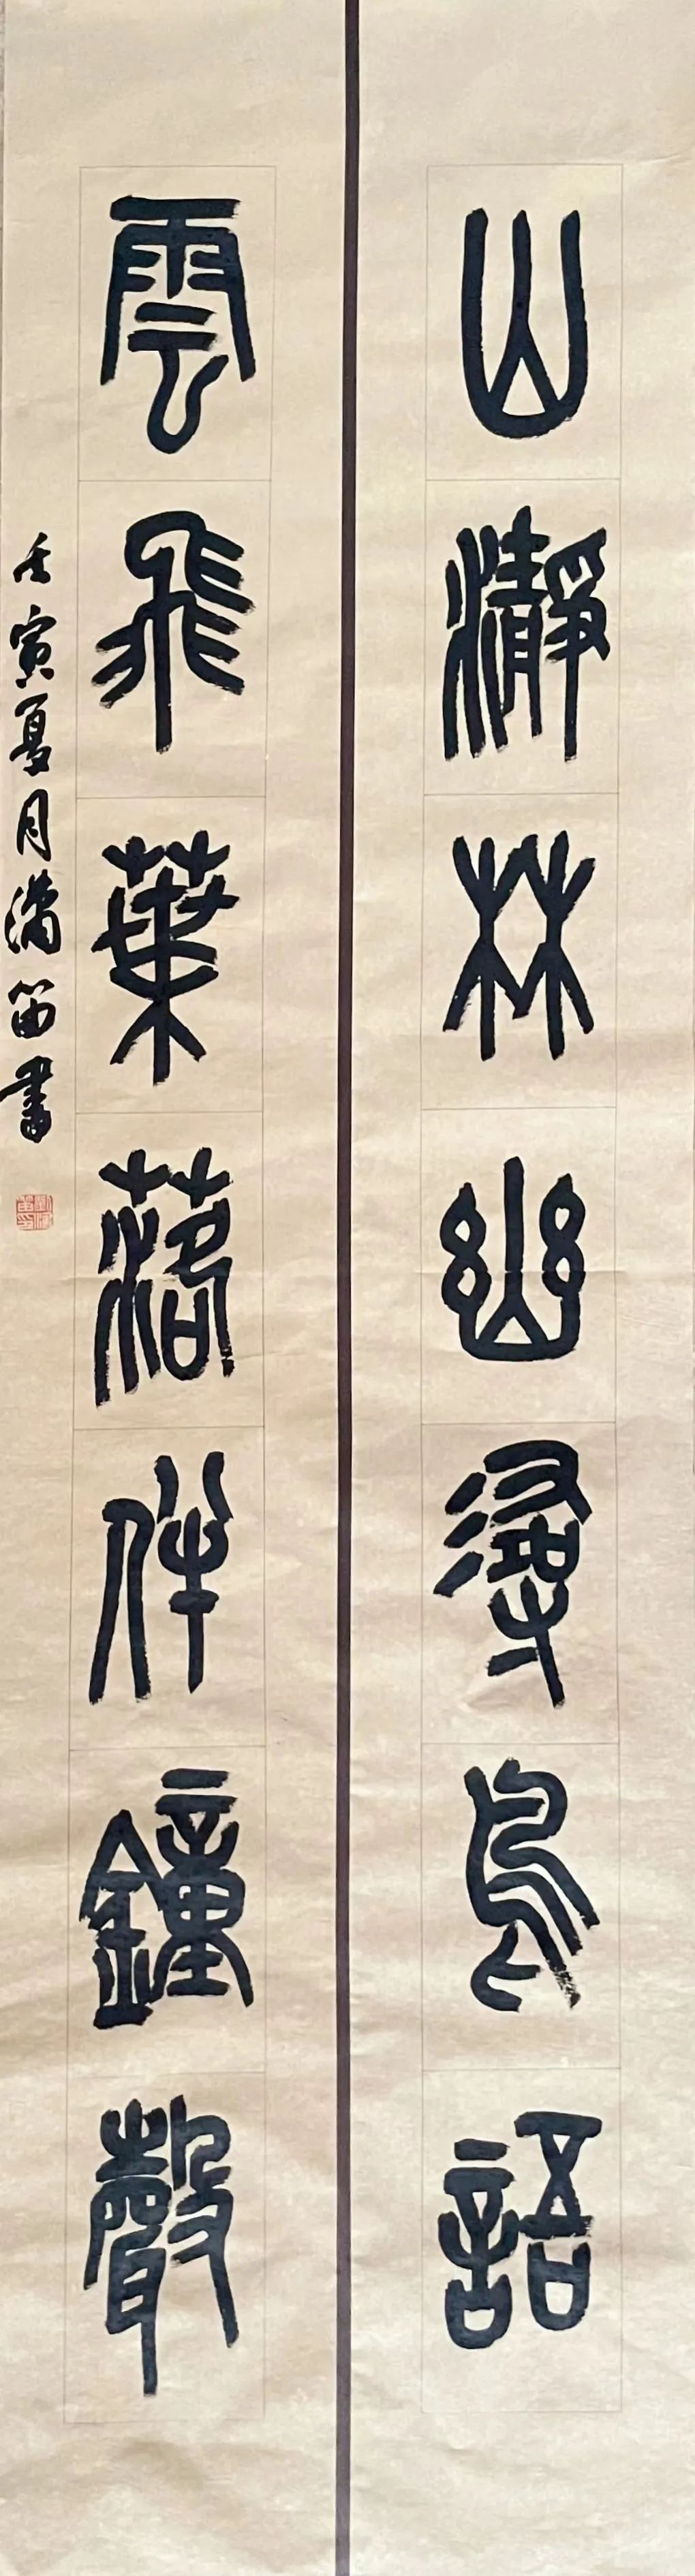 山瀞林幽尋鳥語
雲飛葉落伴鐘聲
壬寅夏月瀟笛書